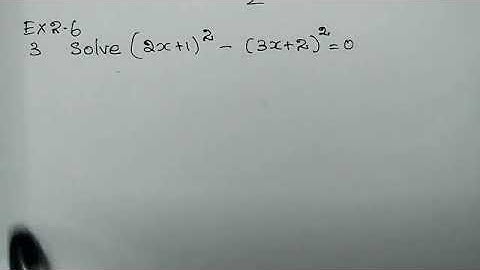 Ex 2.6
3 Solve (2x+1)² - (3x+2)² = 0